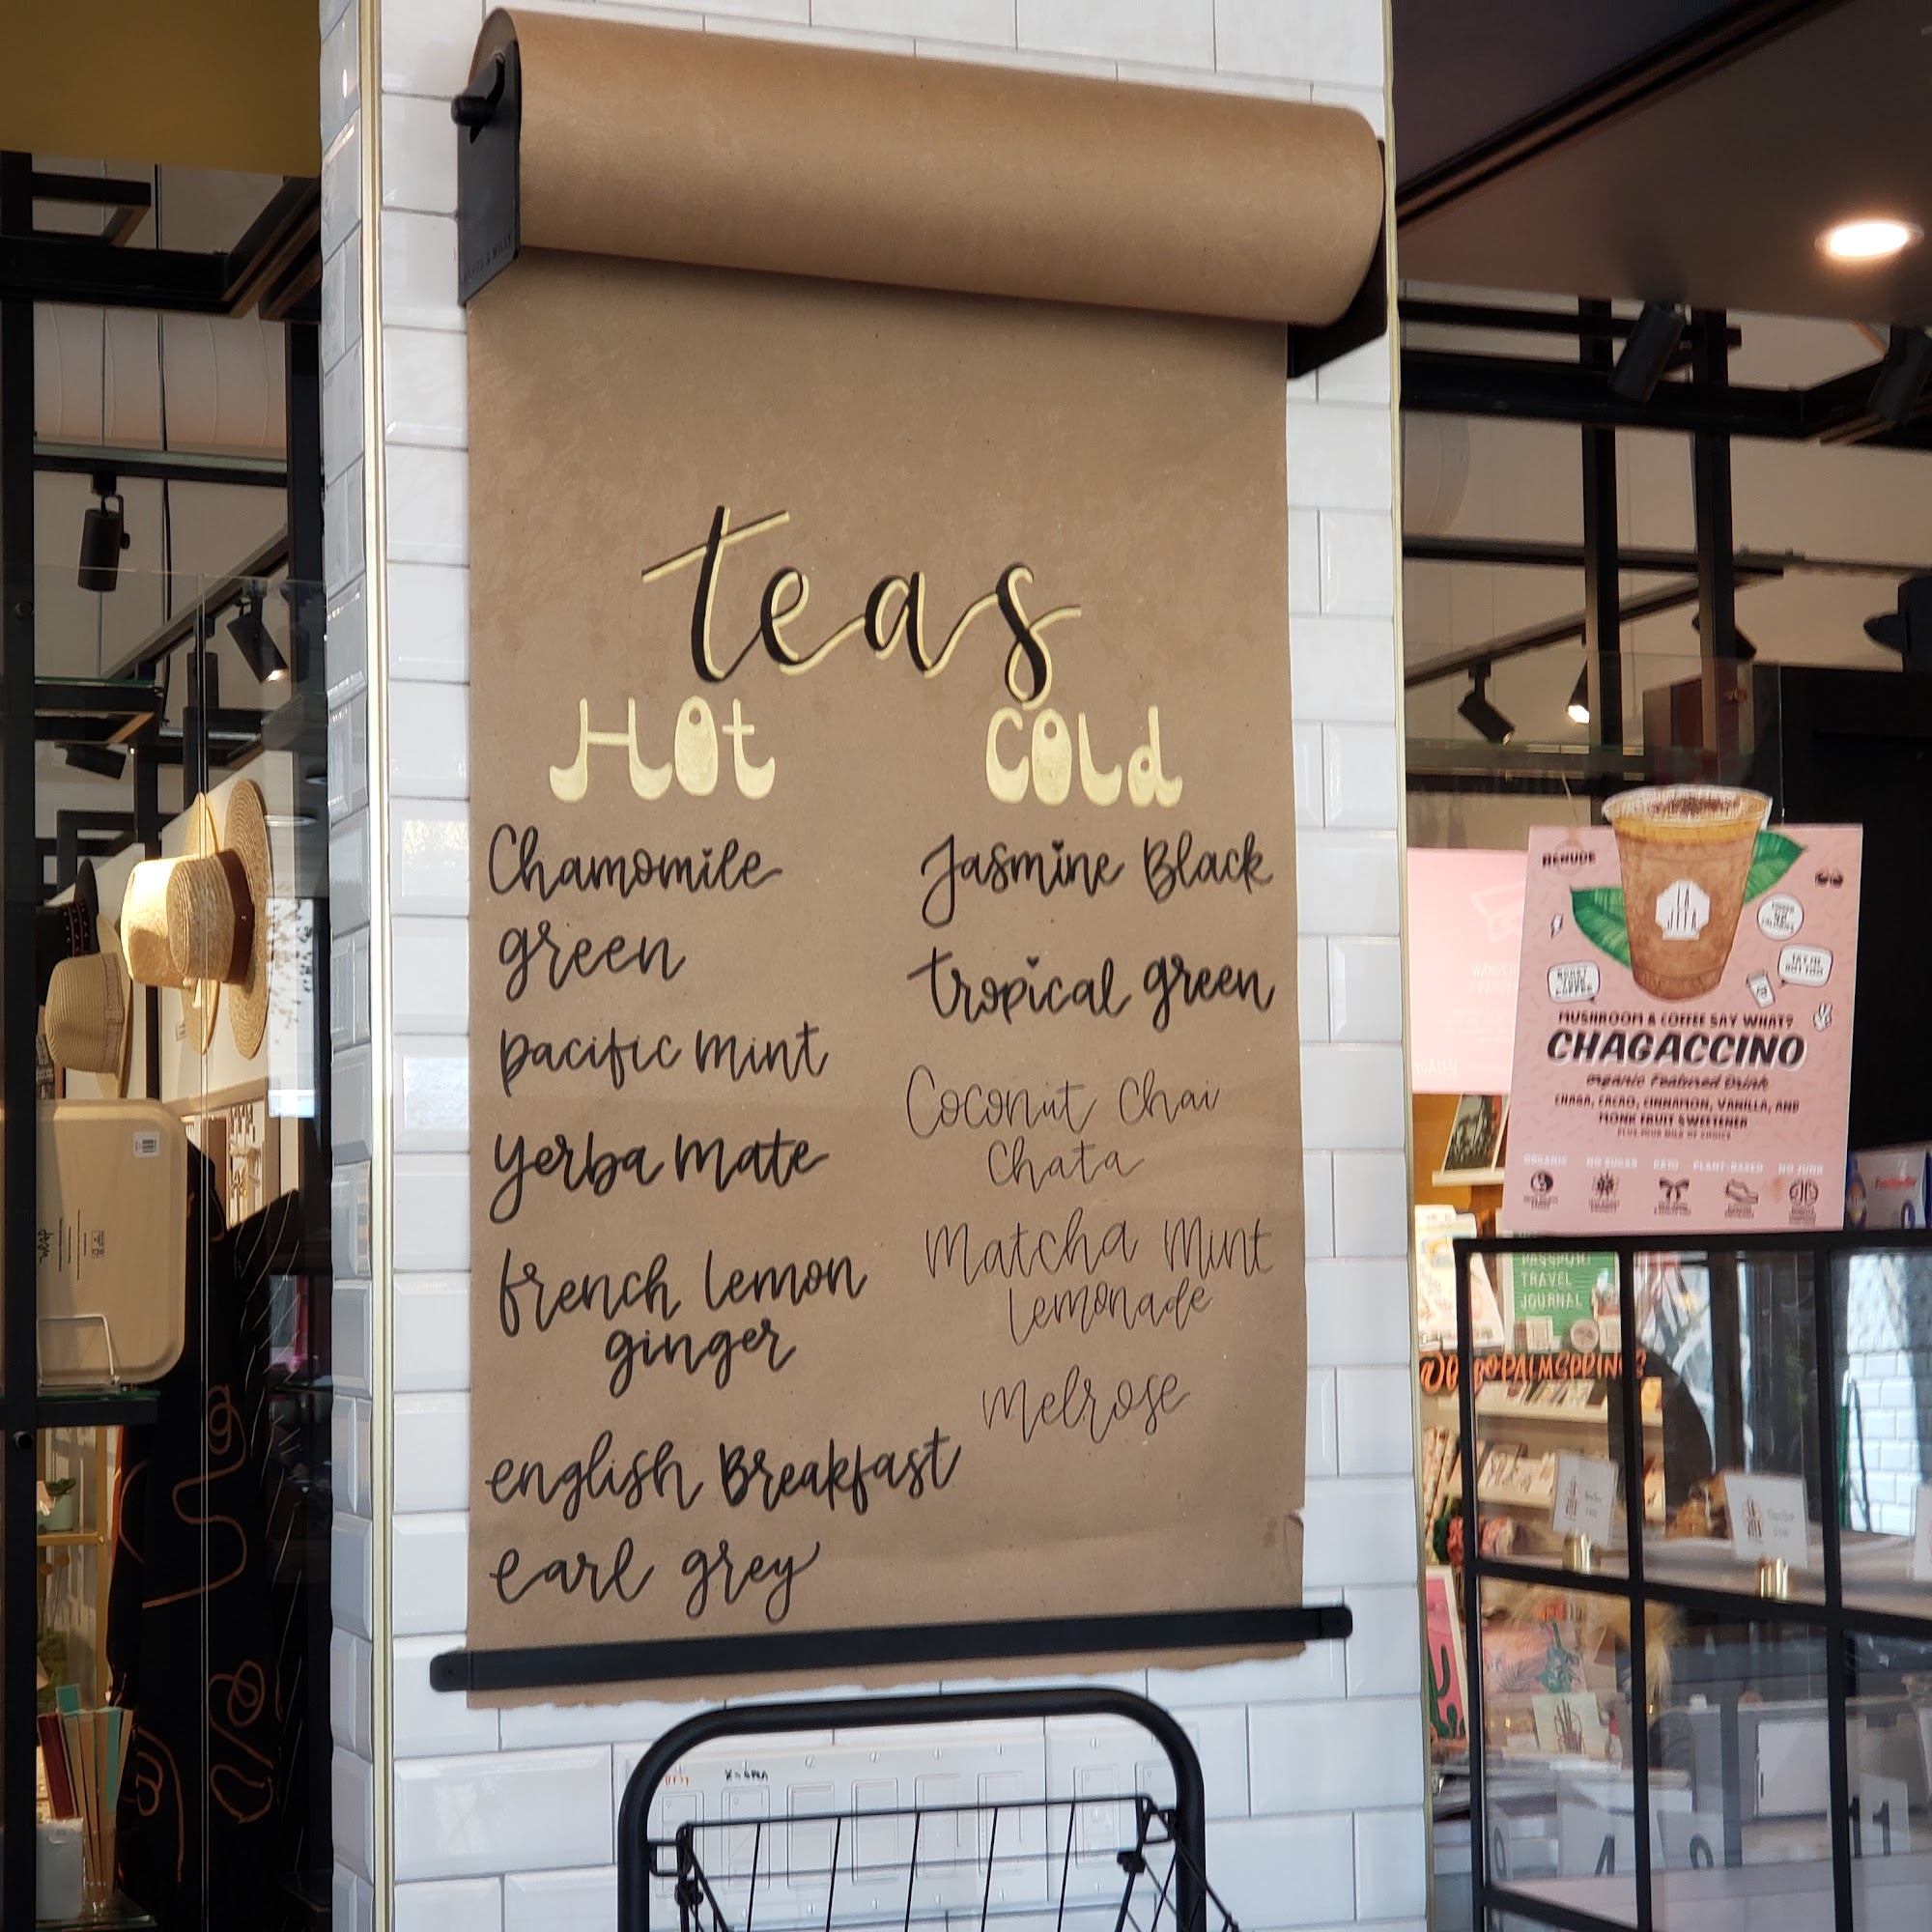 teas
Hot
Chamomile
green
pacific mint
yerba mate
french lemon
ginger
english Breakfast
earl grey
Cold
Jasmine Black
tropical green
Coconut Chai
Chata
Matcha Mint
Lemonade
Melrose
RENUDE
LA
JEFA
BOOST
YOUR
COFFEE
TRY ME
HOT TOO
MUSHROOM & COFFEE SAY WHAT?
CHAGACCINO
Organic Featured Drink
CHAGA, CACAO, CINNAMON, VANILLA, AND
MONK FRUIT SWEETENER
PLUS YOUR MILK OF CHOICE
ORGANIC NO SUGAR KETO PLANT-BASED NO JUNK
PASSPORT
TRAVEL
JOURNAL
4
11